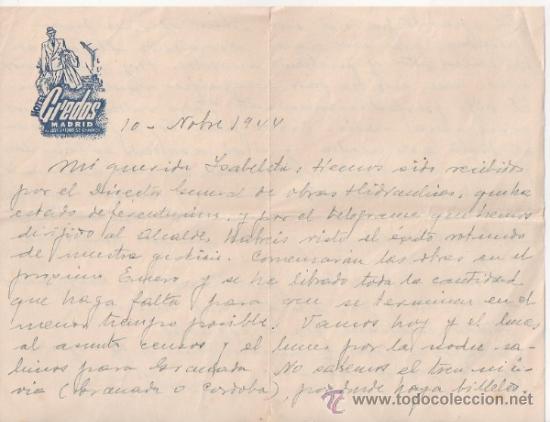 HOTEL
Gredos
MADRID
10 - Nobre 1944
Mi querida Isabelita: hemos sido recibidos
por el Director General de obras Hidraulicas, que ha
estado y por el telegrama que hemos
dirijido al Alcalde, habreis visto el éxito rotundo
de nuestra gestión. Comenzaran las obras en el
proximo Enero, y se ha librado toda la cantidad
que haga falta para que se terminen en el
menor tiempo posible. Vamos hoy y el lunes
al asunto censos y el lunes por la noche sa-
limos para Granada. No sabemos el tren ni la
via (Granada o Cordoba), por donde haya billetes.
todocoleccion.net